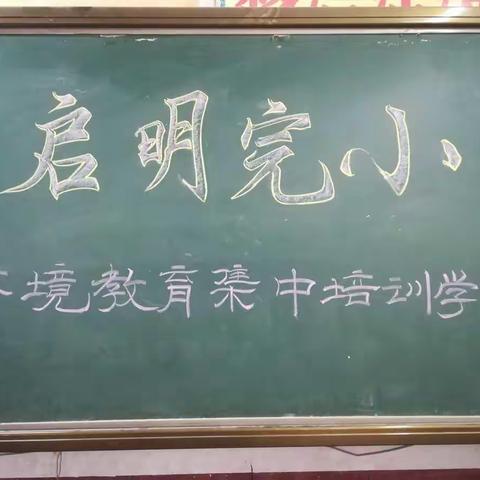 启明完小
境教育集中培训学